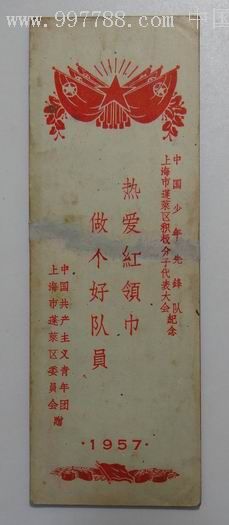 www.997788.com 中国
中国少年先鋒队
上海市蓬萊区积极分子代表大会紀念
热爱紅領巾
做个好队員
中国共产主义青年团
上海市蓬萊区委員会贈
·1957·